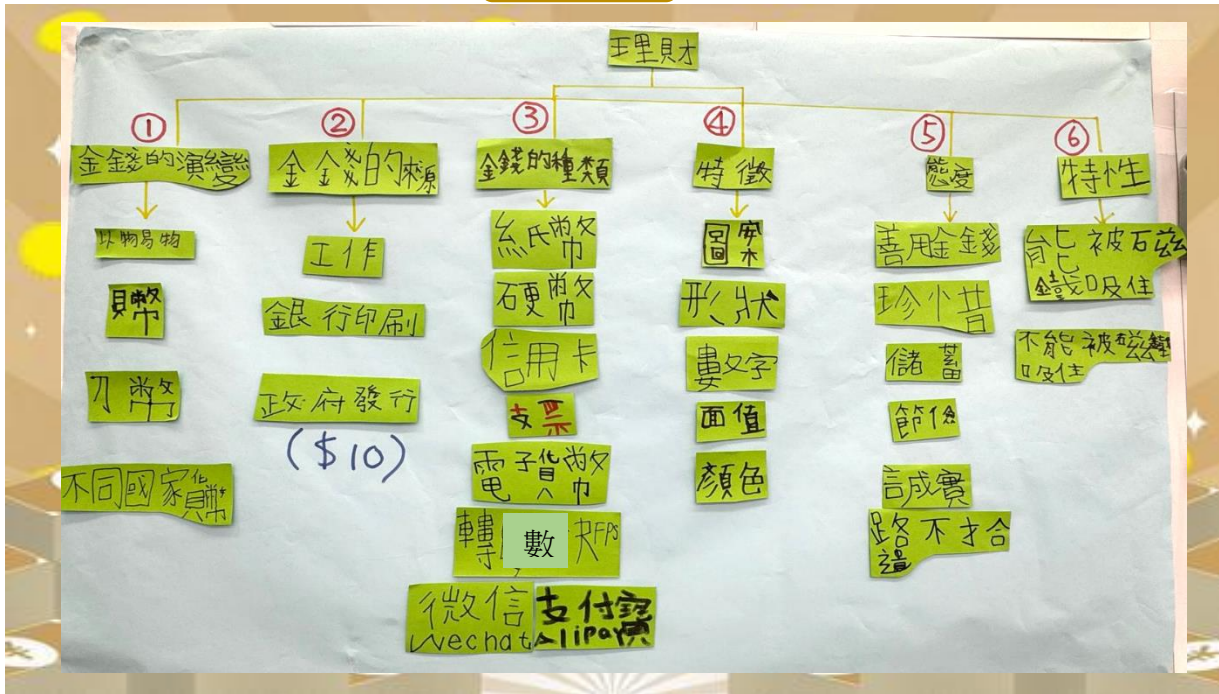 理財
①
金錢的演變
以物易物
貝幣
刀幣
不同國家貨幣
②
金錢的來源
工作
銀行印刷
政府發行
($10)
③
金錢的種類
紙幣
硬幣
信用卡
支票
電子貨幣
轉數快FPS
微信
Wechat
支付寶
Alipay
④
特徵
圖案
形狀
數字
面值
顏色
⑤
態度
善用金錢
珍惜
儲蓄
節儉
誠實
路不拾
遺
⑥
特性
能被磁
鐵吸住
不能被磁鐵
吸住